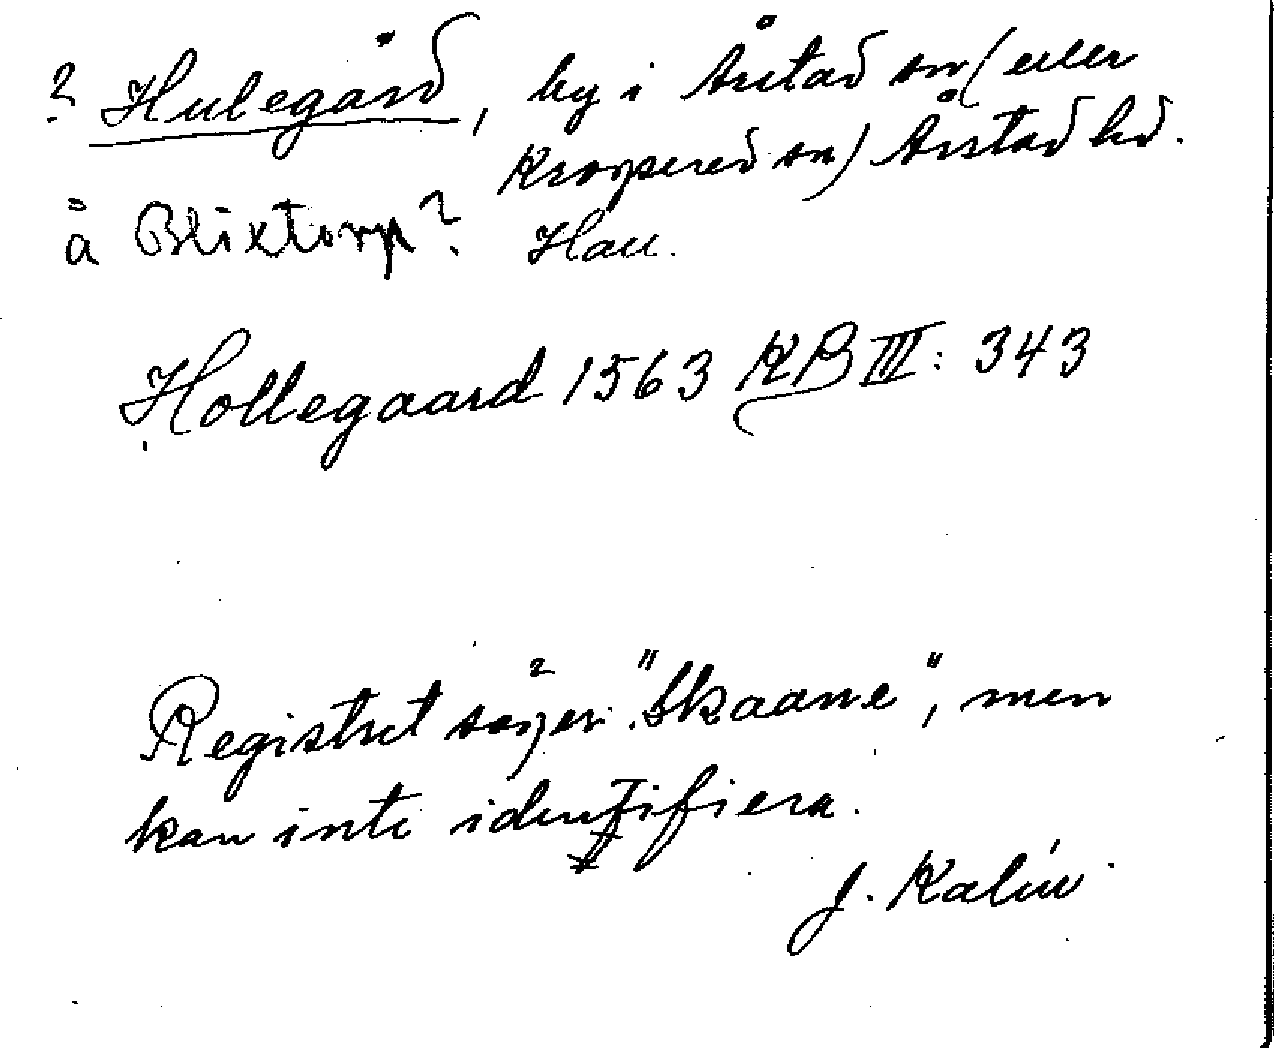 ? Hulegård, by i Årstad sn (eller
Krogsered sn) Årstad hd.
å Blixtorp? Hall.
Hollegaard 1563 KB III: 343
Registret säger "Skaane", men
kan inte identifiera.
J. Kalén